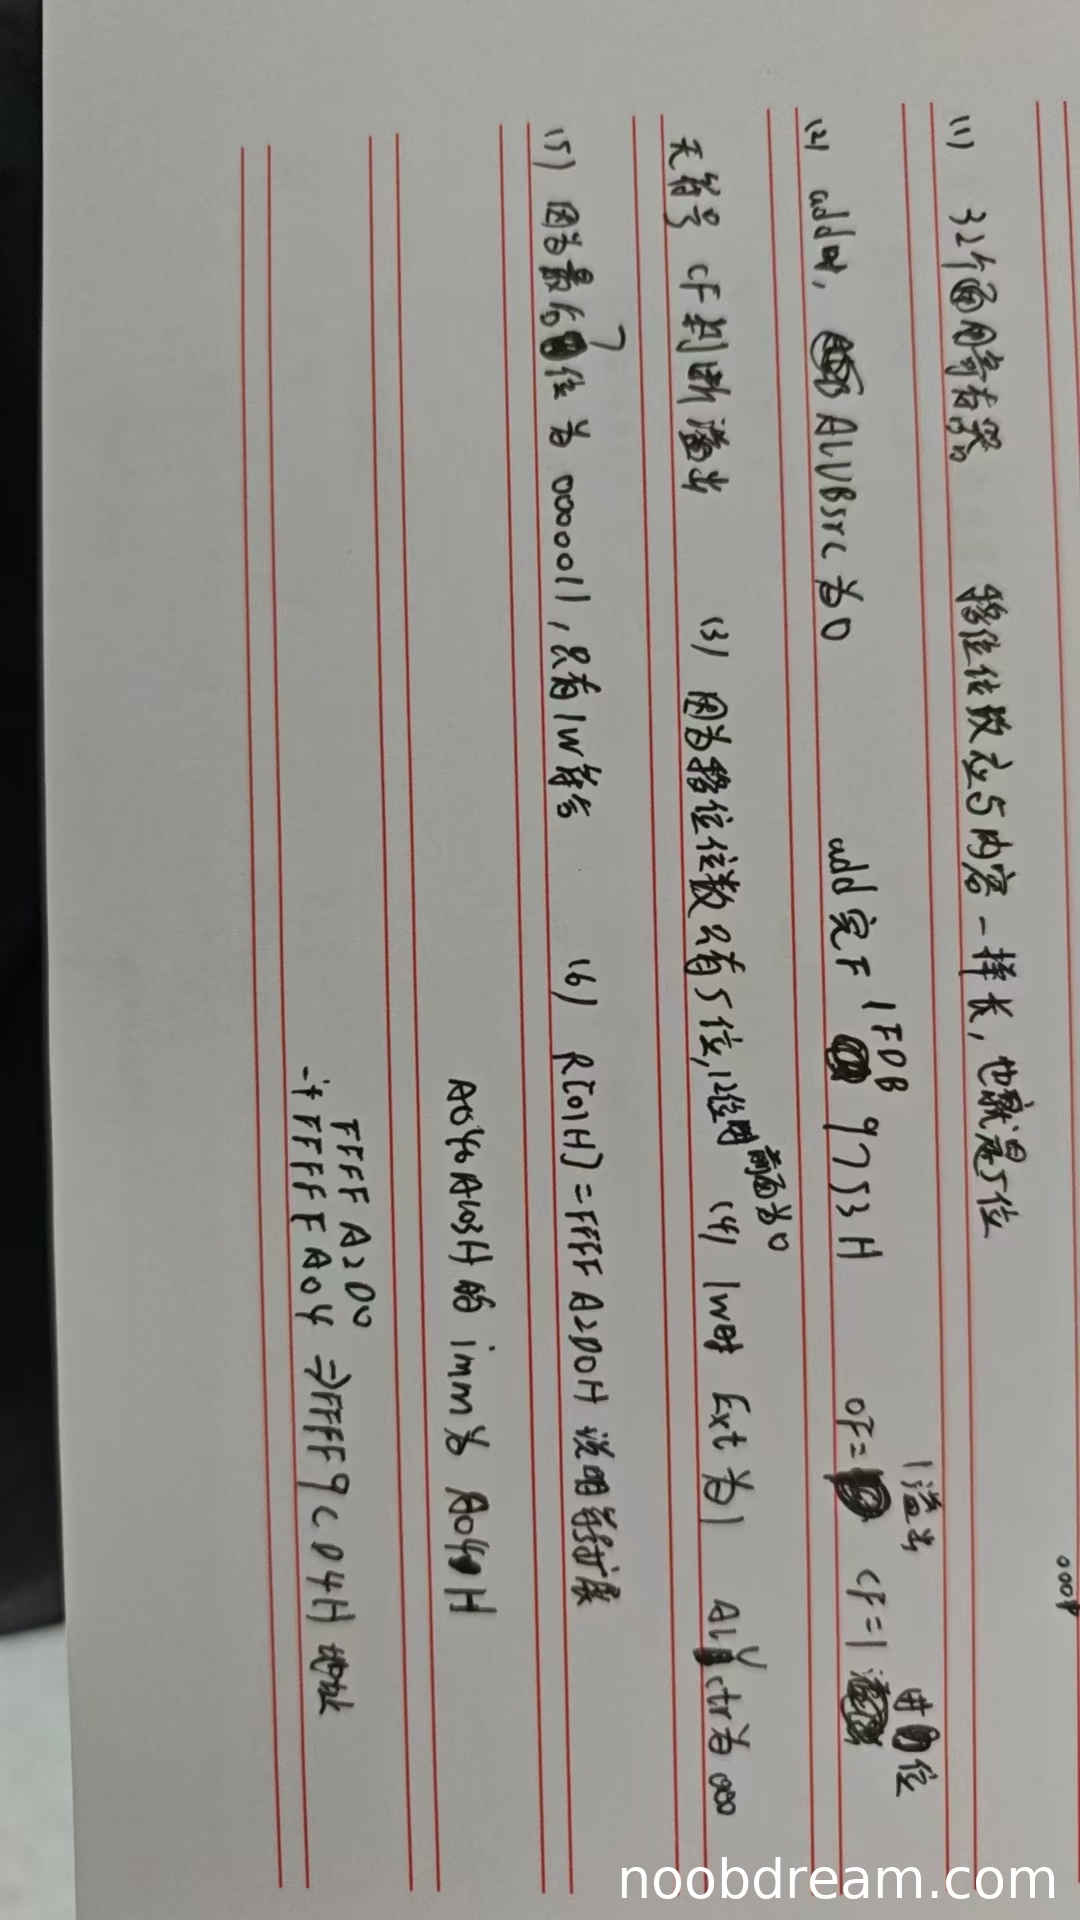 (1) 32个通用寄存器 移位位数应与内容一样长,也就是5位
(2) add时, ALUBsrc为0 add完F 1FDB 9753H OF=1溢出 CF=1 进位
无符号 CF判断溢出 (3) 因为移位位数只有5位,12位时前面为0 (4) lw时 Ext为1 ALUctr为000
(5) 因为最后7位为0000011,只有lw符合 (6) R[01H]=FFFF A2D0H 说明符扩展
H的imm为
FFFF A2D0
+ FFFF FA04 ⇒FFFF 9C04H 地址
000
noobdream.com